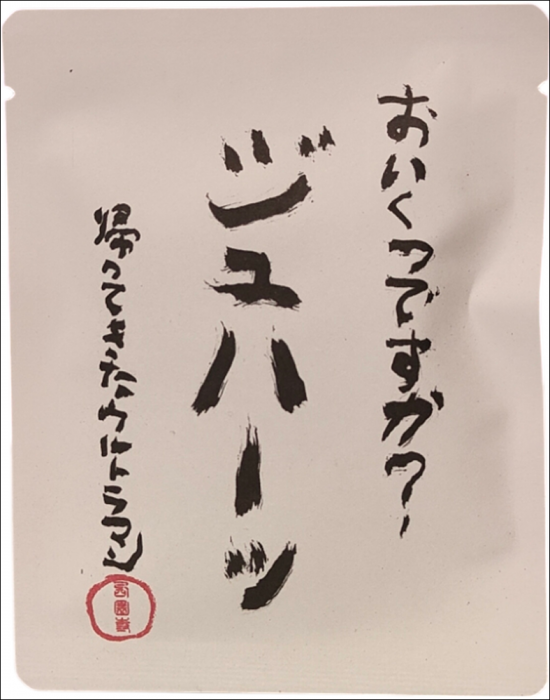 おいくつですか?
ジュハーッ
帰ってきたウルトラマン